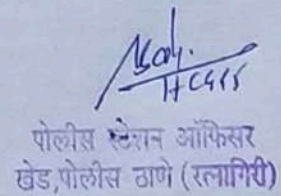 पोलीस स्टेशन ऑफिसर
खेड, पोलीस ठाणे (रत्नागिरी)